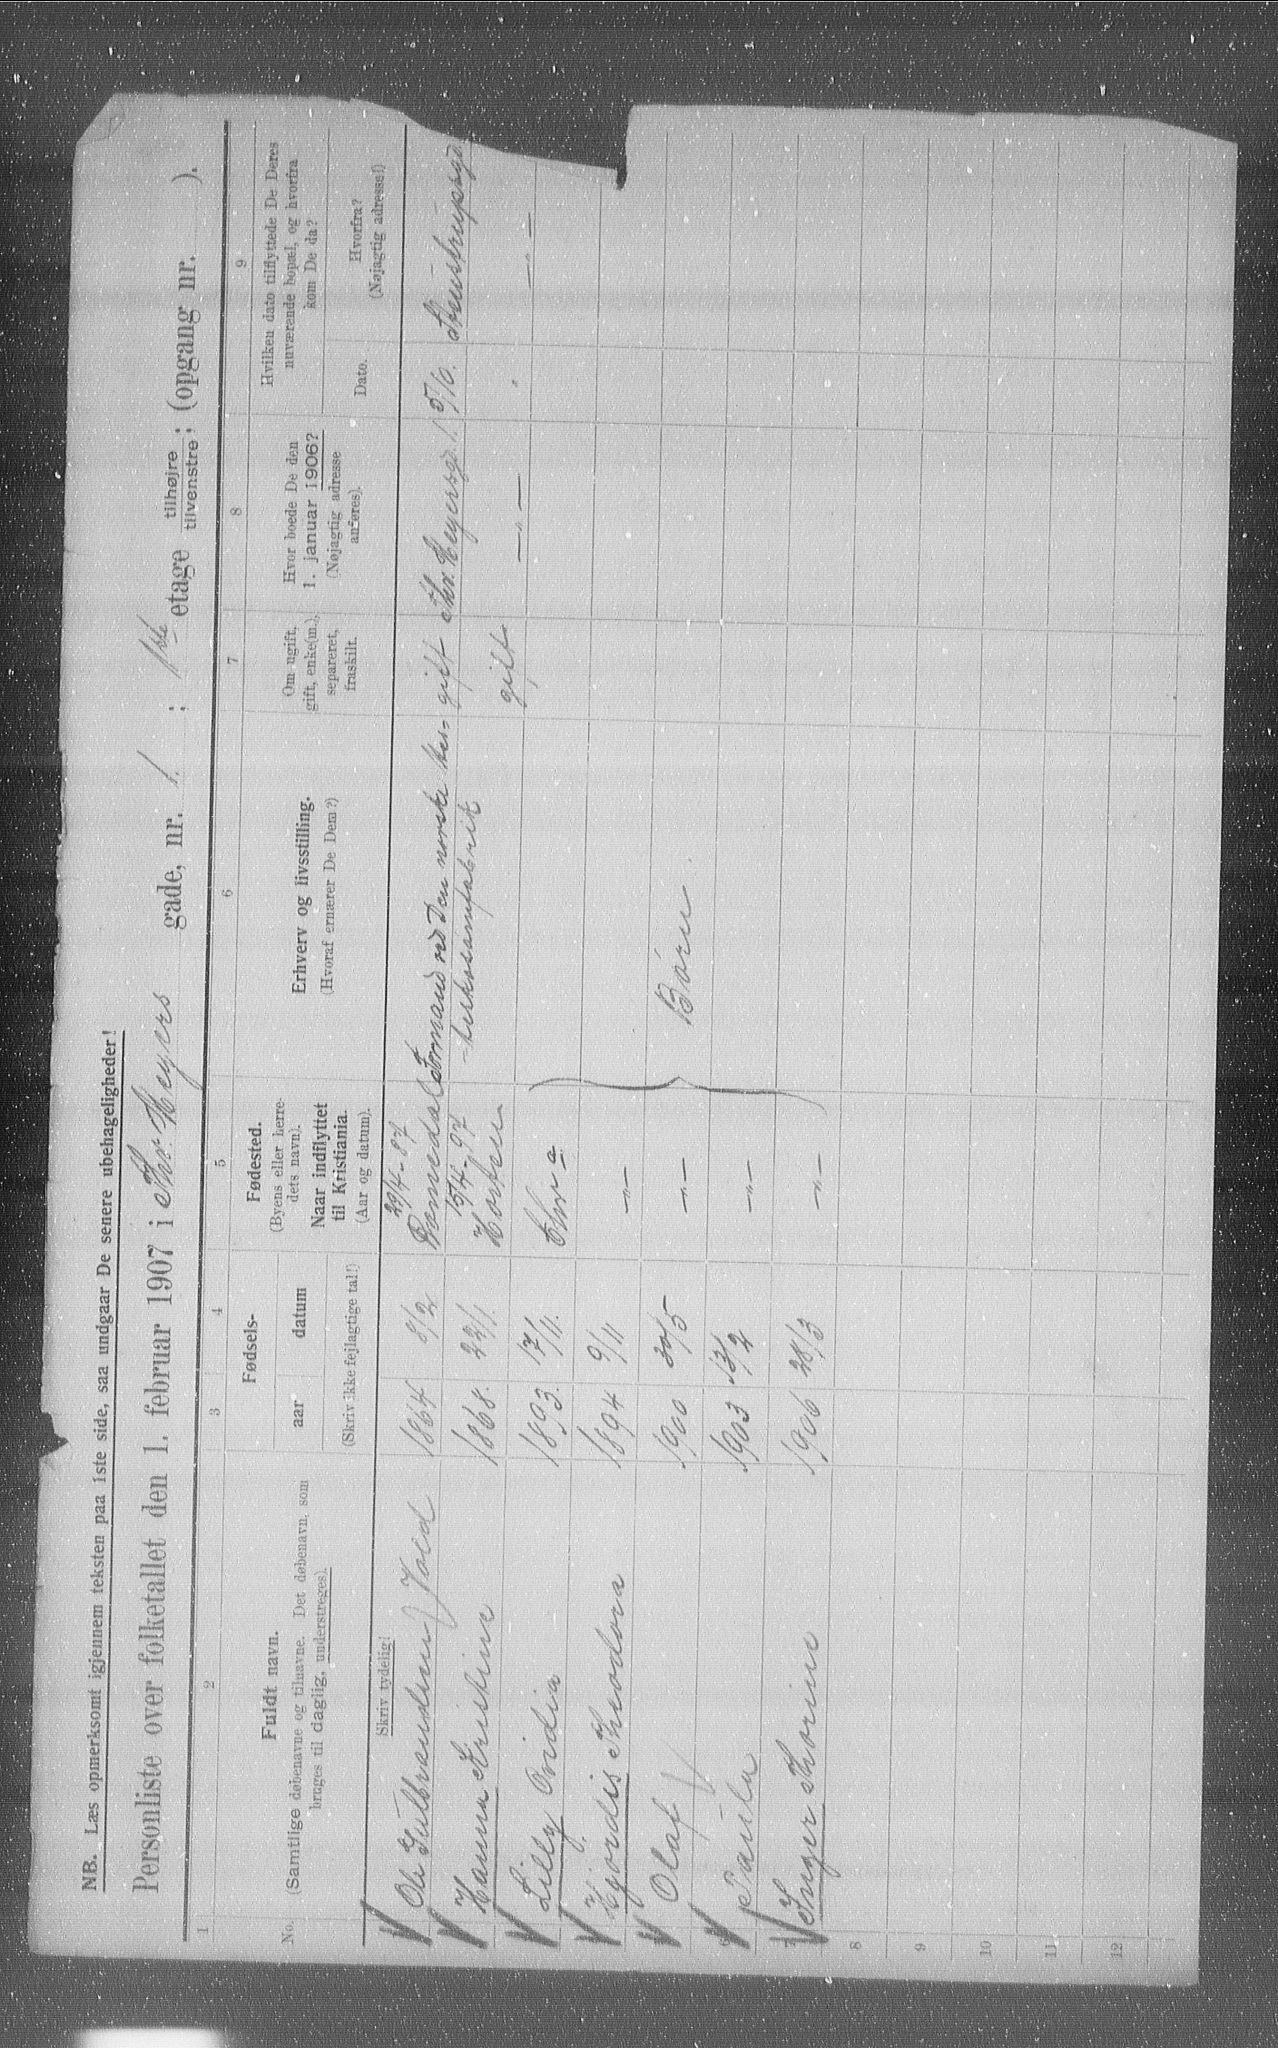 NB. Læs opmerksomt igjennem teksten paa 1ste side, saa undgaar De senere ubehageligheder!
Personliste over folketallet den 1. februar 1907 i Thv. Meyers gade, nr. 1. ; 1ste etage tilhøjre tilvenstre; (opgang nr. ).
1 2 3 4 5 6 7 8 9
No.
Fuldt navn.
(Samtlige døbenavne og tilnavne. Det døbenavn, som
bruges til daglig, understreges).
Skriv tydelig!
Fødsels-
aar datum
(Skriv ikke fejlagtige tal!)
Fødested.
(Byens eller herre-
dets navn).
Naar indflyttet
til Kristiania.
(Aar og datum).
Erhverv og livsstilling.
(Hvoraf ernærer De Dem?)
Om ugift,
gift, enke(m.),
separeret,
fraskilt.
Hvor boede De den
1. januar 1906?
(Nøjagtig adresse
anføres).
Hvilken dato tilflyttede De Deres
nuværende bopæl, og hvorfra
kom De da?
Dato.
Hvorfra?
(Nøjagtig adresse!)
29/4-87
Ole Gulbrandsen Vold 1864 8/2 Formand ved Den norske hes- gift Thv. Meyersgd. 1. 5/6. Steenstrupsgd
15/4-97
Hanna Kristine 1868. 22/1. Horten -keskosømfabrik gift —"— " —"—
Lilly Ovidia 1893. 17/11. Chr a
Hjørdis Theodora 1894 9/11 —"—
Olaf 1900 30/5 —"— Børn
6 Paula 1903 13/2 —"—
7 Inger Thorine 1906 28/3 —"—
8
9
10
11
12